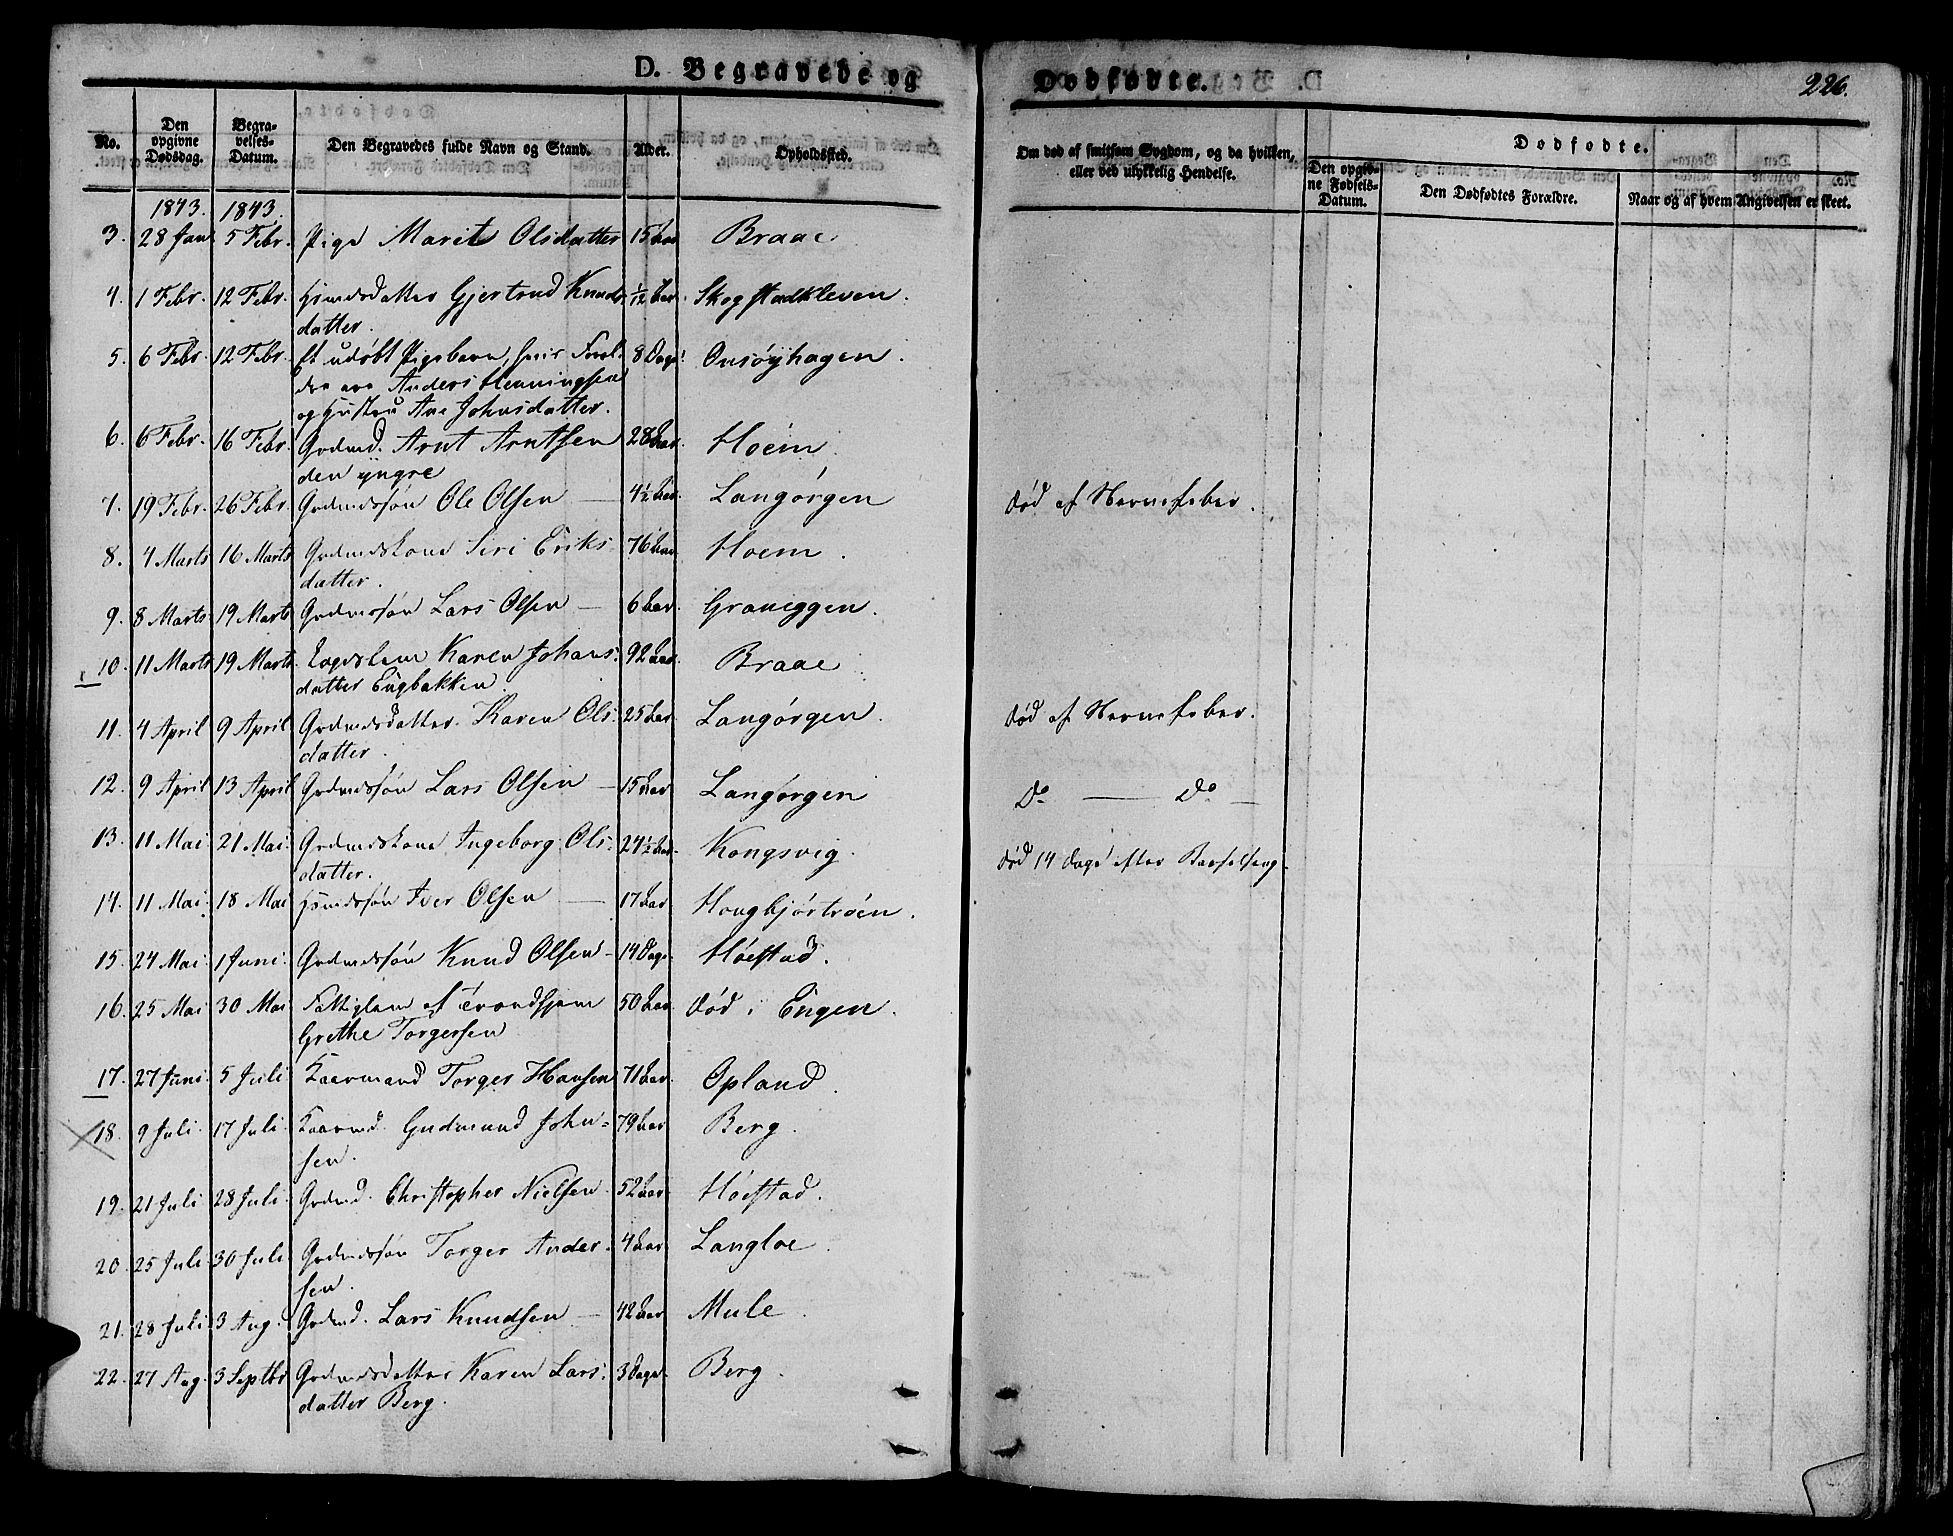 D. Begravede og
Dødfødte.
226.
No.
Den opgivne Dødsdag.
Begravelses-Datum.
Den Begravedes fulde Navn og Stand.
Alder.
Opholdssted.
Om død af smitsom Sygdom, og da hvilken, eller ved ulykkelig Hendelse.
Dødfødte.
Den opgivne Fødsels-Datum.
Den Dødfødtes Forældre.
Naar og af hvem Angivelsen er skeet.
1843. 1843.
3. 28 Jan 5 Febr. Pige Marit Olsdatter 15 Aar Braae
4. 1 Febr. 12 Febr. Hsmdsdatter Gjertrud Knuds- 1/12 Aar. Skogstadkleven.
datter.
5. 6 Febr. 12 Febr. Et udøbt Pigebarn, hvis Foræl- 8 Dage Onsøyhagen.
dre ere Anders Henningsen
og Hustru Ane Johnsdatter.
6. 6 Febr. 16 Febr. Grdmd. Arnt Arntsen 28 Aar. Hoem
den yngre
7. 19 Febr. 26 Febr. Grdmdssøn Ole Olsen — 4½ Aar. Langørgen død af Nervefeber.
8. 4 Marts 16 Marts Grdmdskone Siri Eriks 76 Aar Hoem.
datter.
9. 8 Marts 19 Marts Grdmdssøn Lars Olsen — 6 Aar. Graneggen.
10. 11 Marts 19 Marts Karen Johans- 92 Aar. Braae
datter Engbakken.
11. 4 April 9 April Grdmdsdatter Karen Ols 25 Aar. Langørgen. død af Nervefeber.
datter.
12. 9 April 13 April Grdmdssøn Lars Olsen — 15 Aar Langørgen Do — Do —
13. 11 Mai 21 Mai. Grdmdskone Ingeborg Ols- 24½ Aar. Kongsvig. død 14 Dage efter Barselseng.
datter.
14. 11 Mai. 18 Mai Hsmdssøn Iver Olsen — 17 Aar Hougbjørtrøen.
15. 24 Mai 1 Juni. Grdmdssøn Knud Olsen — 14 Dage. Høestad.
16. 25 Mai 30 Mai Fattiglem af Trondhjem 50 Aar. død i Engen.
Grethe Torgersen
17. 27 Juni. 5 Juli Kaarmand Torger Hansen 71 Aar. Opland.
18. 9 Juli. 17 Juli. Kaarmd. Gudmund John= 79 Aar Berg.
sen.
19. 21 Juli 28 Juli. Grdmd. Christopher Nielsen. 52 Aar. Høestad.
20. 25 Juli. 30 Juli Grdmdssøn Torger Ander- 4 Aar. Langloe.
sen.
21. 28 Juli. 3 Aug. Grdmd. Lars Knudsen — 42 Aar Mule.
22. 27 Aug. 3 Septbr Grdmdsdatter Karen Lars- 3 Dage. Berg.
datter Berg.